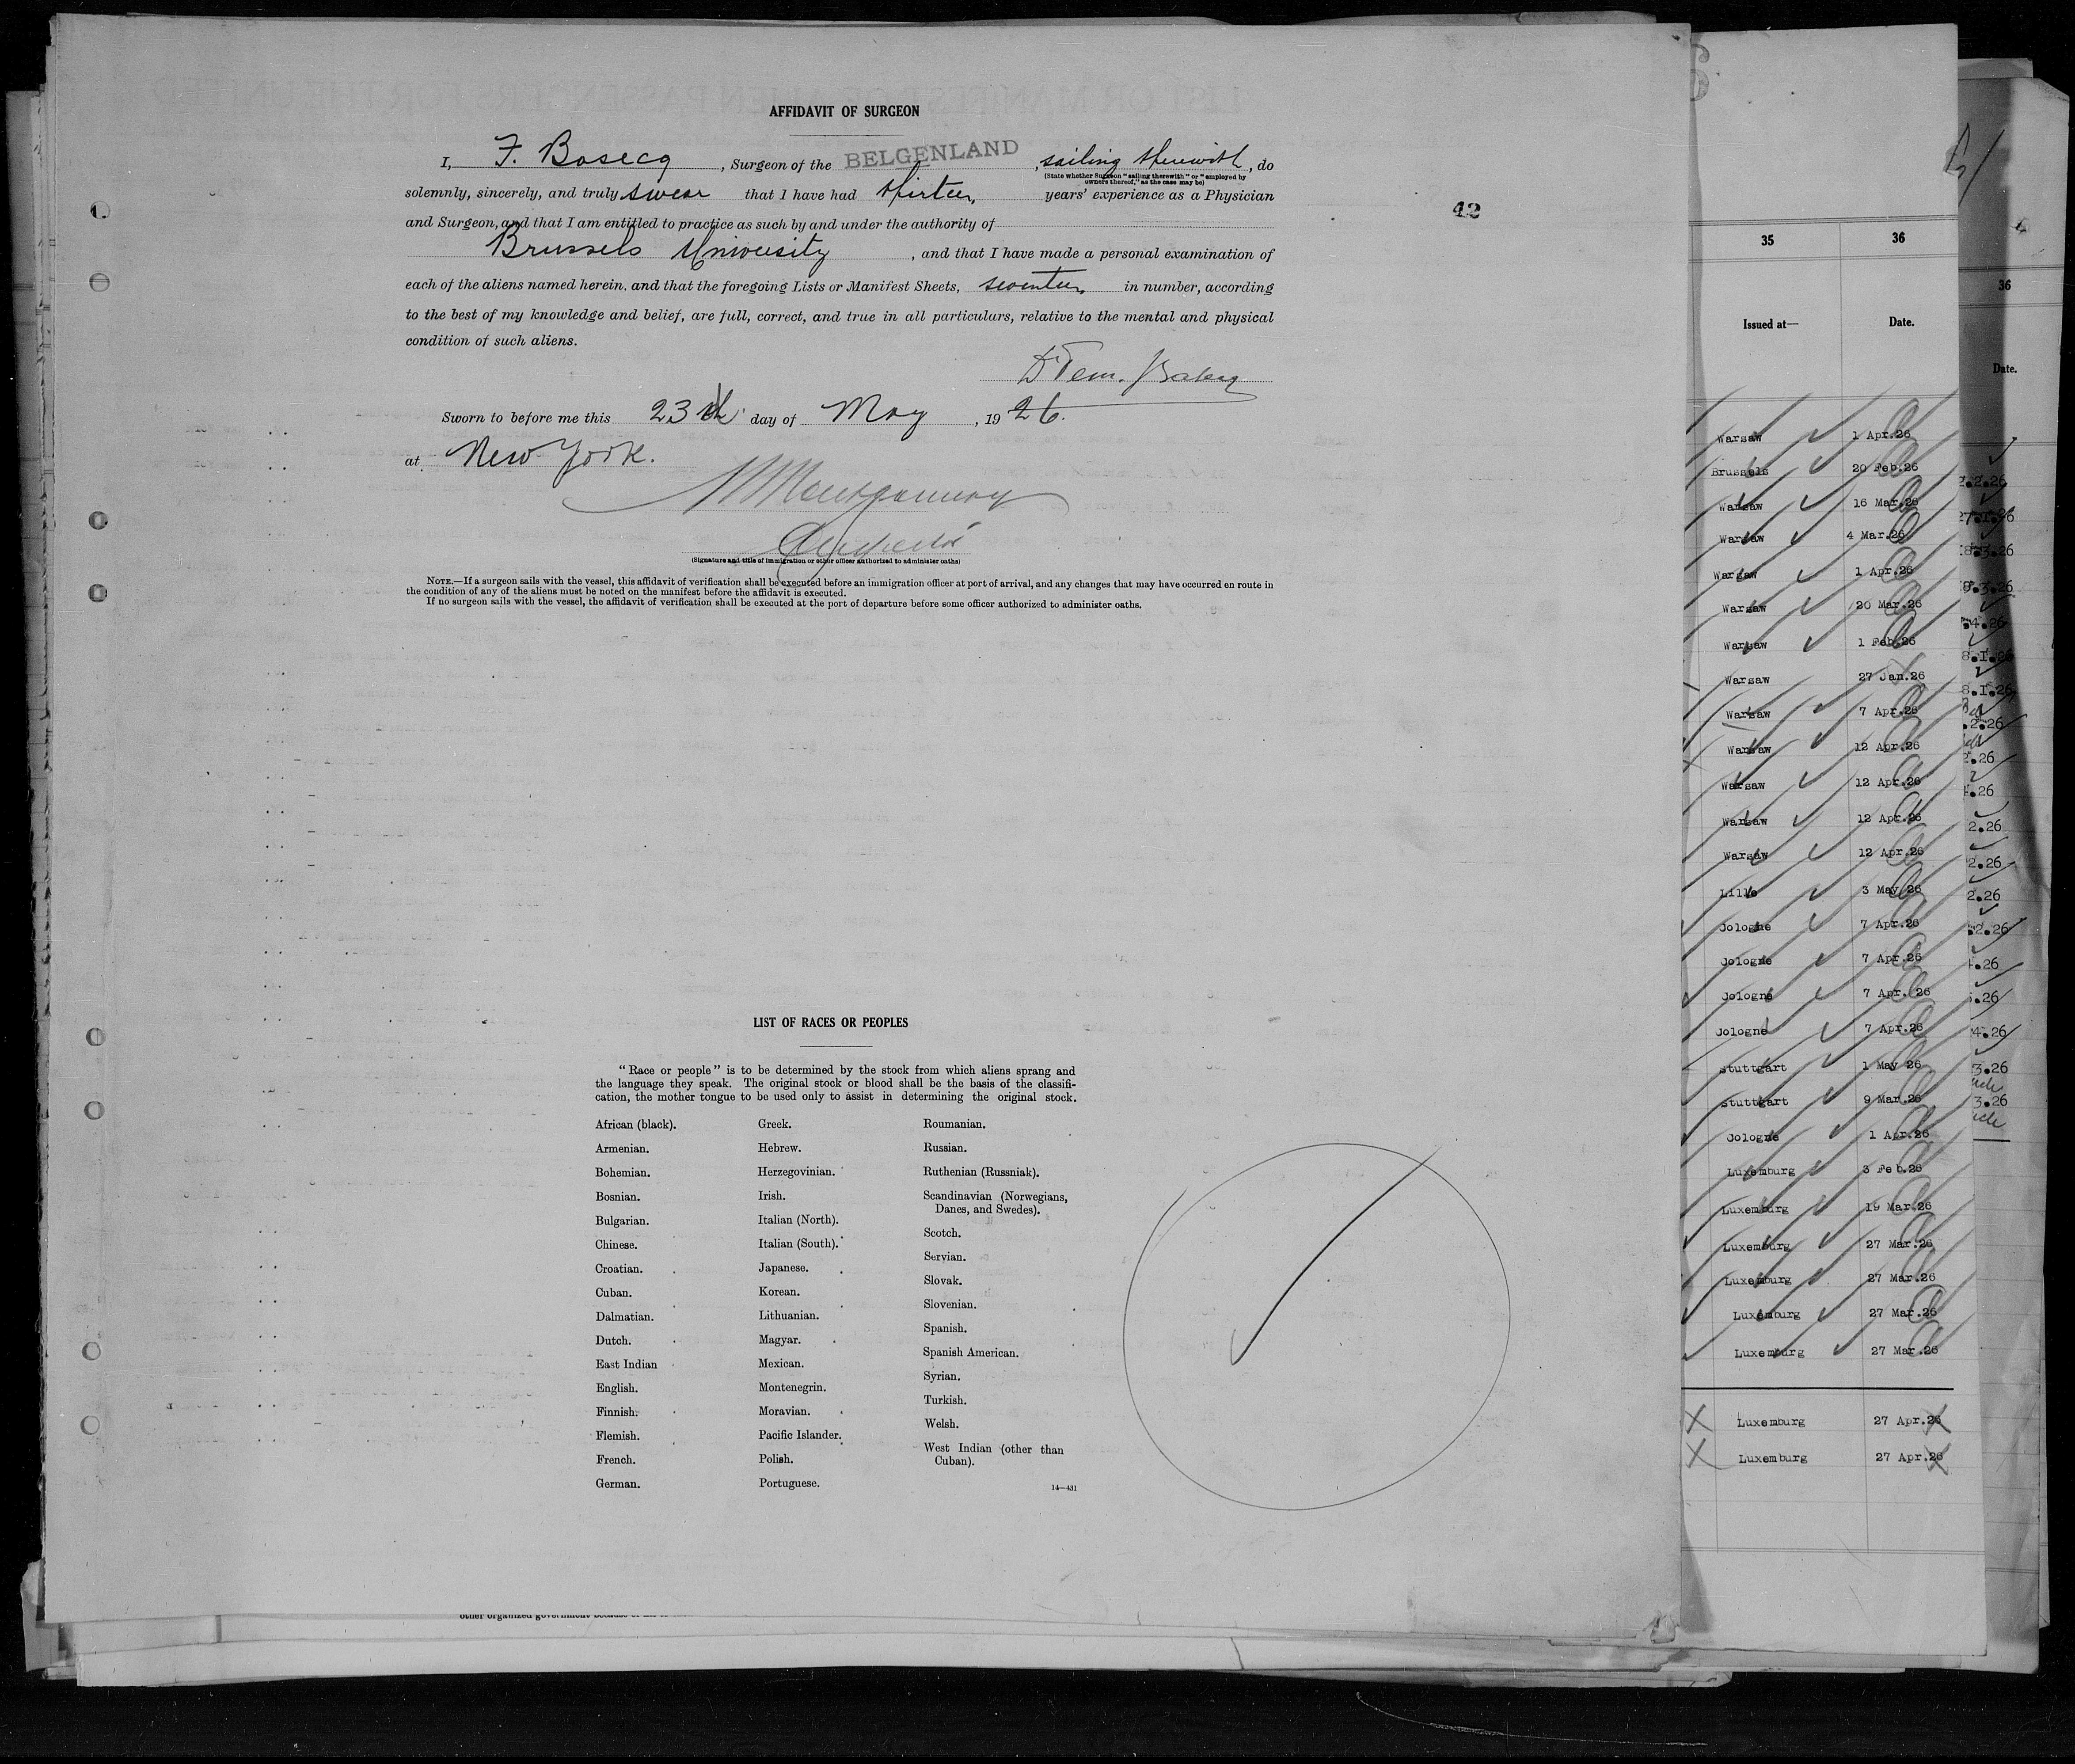 AFFIDAVIT OF SURGEON
I, F. Bosecq, Surgeon of the BELGENLAND, sailing therewith, do
(State whether Surgeon "sailing therewith" or "employed by
owners thereof," as the case may be)
solemnly, sincerely, and truly swear that I have had thirteen years' experience as a Physician
and Surgeon, and that I am entitled to practice as such by and under the authority of
Brussels University, and that I have made a personal examination of
each of the aliens named herein, and that the foregoing Lists or Manifest Sheets, seventeen in number, according
to the best of my knowledge and belief, are full, correct, and true in all particulars, relative to the mental and physical
condition of such aliens.
Sworn to before me this 23rd day of May, 1926.
at New York.
Montgomery
(Signature and title of immigration or other officer authorized to administer oaths)
NOTE.—If a surgeon sails with the vessel, this affidavit of verification shall be executed before an immigration officer at port of arrival, and any changes that may have occurred en route in
the condition of any of the aliens must be noted on the manifest before the affidavit is executed.
If no surgeon sails with the vessel, the affidavit of verification shall be executed at the port of departure before some officer authorized to administer oaths.
42
LIST OF RACES OR PEOPLES
"Race or people" is to be determined by the stock from which aliens sprang and
the language they speak. The original stock or blood shall be the basis of the classifi-
cation, the mother tongue to be used only to assist in determining the original stock.
African (black).
Armenian.
Bohemian.
Bosnian.
Bulgarian.
Chinese.
Croatian.
Cuban.
Dalmatian.
Dutch.
East Indian
English.
Finnish.
Flemish.
French.
German.
Greek.
Hebrew.
Herzegovinian.
Irish.
Italian (North).
Italian (South).
Japanese.
Korean.
Lithuanian.
Magyar.
Mexican.
Montenegrin.
Moravian.
Pacific Islander.
Polish.
Portuguese.
Roumanian.
Russian.
Ruthenian (Russniak).
Scandinavian (Norwegians,
Danes, and Swedes).
Scotch.
Servian.
Slovak.
Slovenian.
Spanish.
Spanish American.
Syrian.
Turkish.
Welsh.
West Indian (other than
Cuban).
14—431
35 36
Issued at— Date.
Warsaw 1 Apr.26
Brussels 20 Feb.26
Warsaw 16 Mar.26
Warsaw 4 Mar.26
Warsaw 1 Apr.26
Warsaw 20 Mar.26
Warsaw 1 Feb.26
Warsaw 27 Jan.26
Warsaw 7 Apr.26
Warsaw 12 Apr.26
Warsaw 12 Apr.26
Warsaw 12 Apr.26
Warsaw 12 Apr.26
Lille 3 May 26
Cologne 7 Apr.26
Cologne 7 Apr.26
Cologne 7 Apr. 26
Cologne 7 Apr.26
Stuttgart 1 May 26
Stuttgart 9 Mar.26
Cologne 1 Apr.26
Luxemburg 3 Feb.26
Luxemburg 19 Mar.26
Luxemburg 27 Mar.26
Luxemburg 27 Mar.26
Luxemburg 27 Mar.26
Luxemburg 27 Mar.26
Luxemburg 27 Apr.26
Luxemburg 27 Apr.26
36
Date.